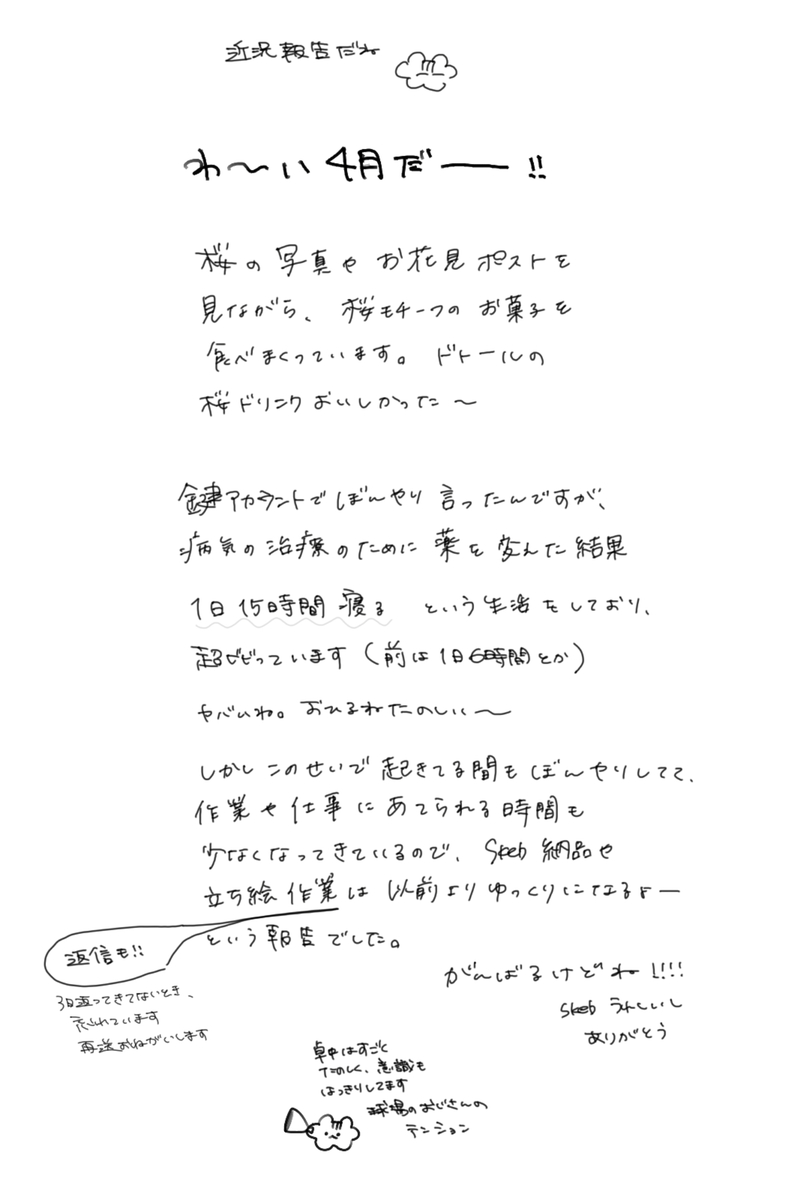 近況報告だね
わ〜い4月だ──!!
桜の写真やお花見ポストを
見ながら、桜モチーフのお菓子を
食べまくっています。ドトールの
桜ドリンクおいしかった〜
鍵アカウントでぼんやり言ったんですが、
病気の治療のために薬を変えた結果
1日15時間寝る という生活をしており、
超ビビっています(前は1日6時間とか)
ヤバいね。おひるねたのしい〜
しかしこのせいで起きてる間もぼんやりしてて、
作業や仕事にあてられる時間も
少なくなってきているので、Skeb納品や
立ち絵作業は以前よりゆっくりになるよー
という報告でした。
返信も!!
3日返ってきてないとき、
忘れられています
再送おねがいします
がんばるけどね!!!!
Skebうれしいし
ありがとう
卓中はすごく
たのしく、意識も
はっきりしてます
球場のおじさんの
テンション